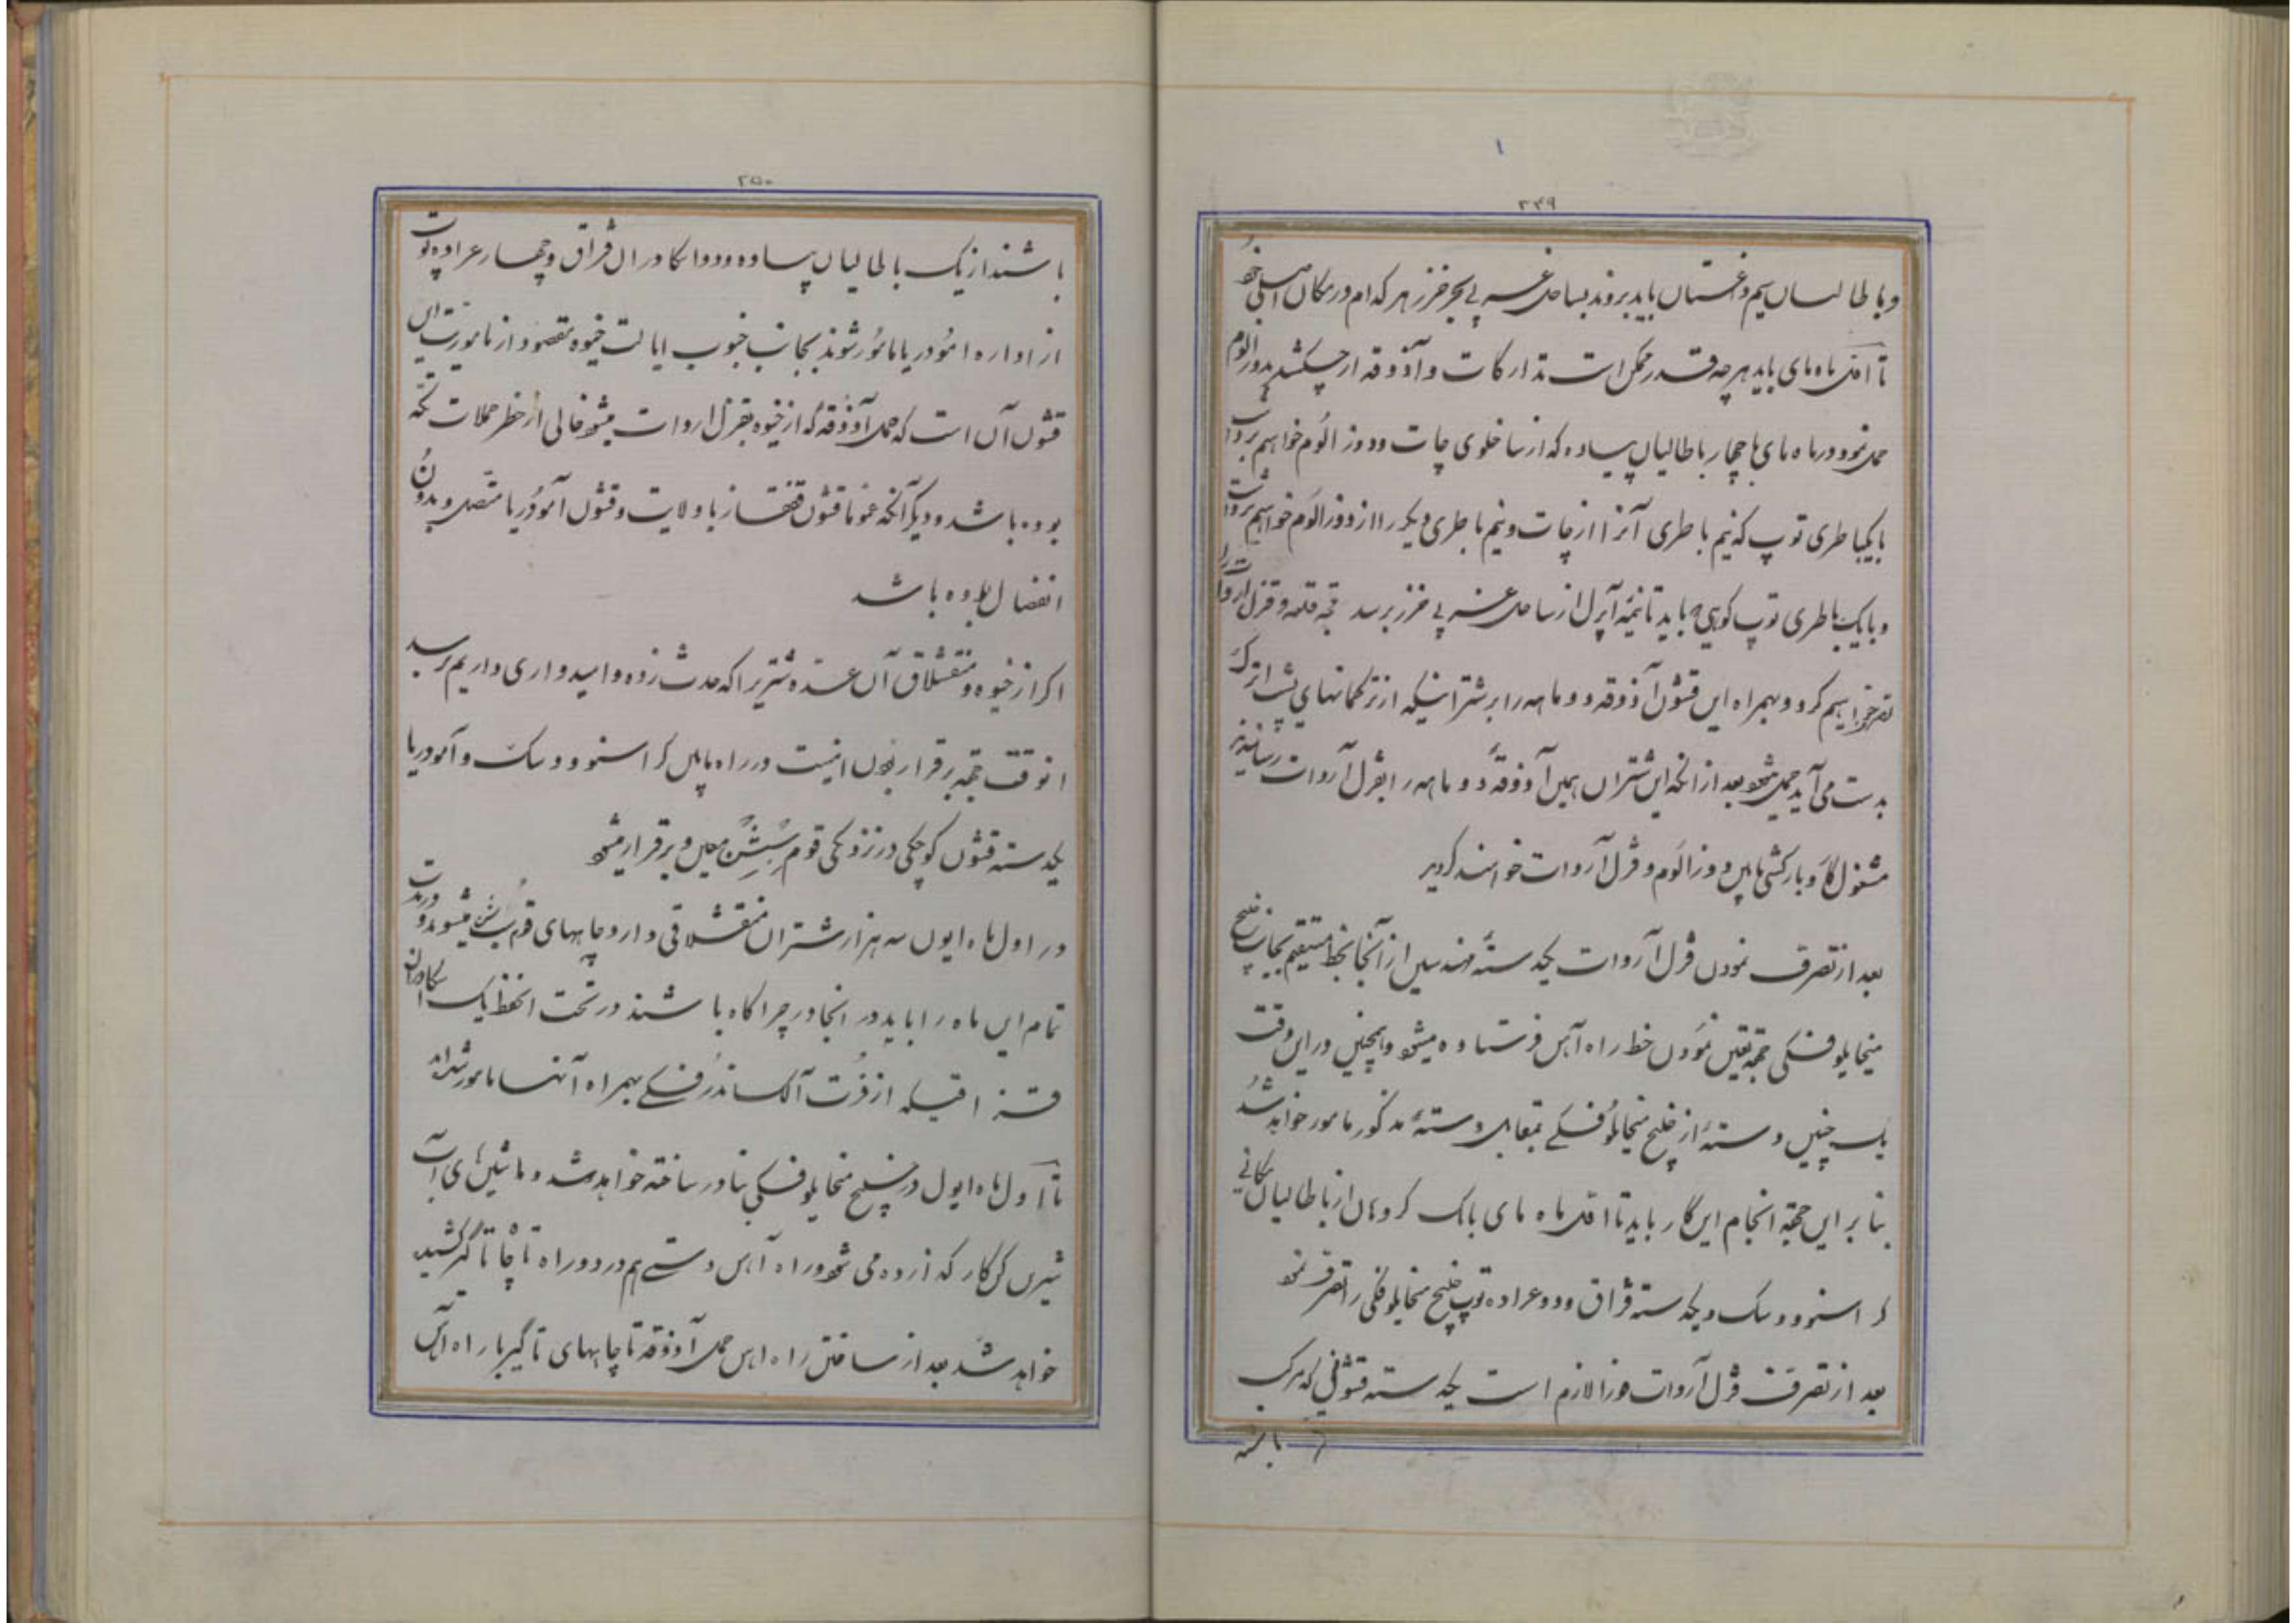 ۲۴۹
و باطالیان سیم داغستان باید بروند بساحل غربی بحر خزر هر کدام در مکان اصلی خود
تا اول ماه مای باید هرچه قدر ممکن است تدارکات و آذوقه از چکشلر بدوز الوم
حمل نمود در ماه مای با چهار باطالیان پیاده که از ساخلوی چات و دوز الوم خواهیم برداشت
با یکباطری توپ که نیم باطری آنرا از چات و نیم باطری دیگر را از دوز الوم خواهیم برداشت
و با یک باطری توپ کوهی که باید تا نیمه آپرل از ساحل غربی خزر برسد قلعه قزل اروات را
تصرف خواهیم کرد و بهمراه این قشون آذوقه دو ماهه را بر شتر اینکه از ترکمانهای پشت اترک
بدست می آید حمل میشود بعد از انکه این شتران همین آذوقه دو ماهه را بقزل آروات رسانیدند
مشغول کار و بارکشی مابین دوز الوم و قزل آروات خواهند گردید
بعد از تصرف نمودن قزل آروات یکدسته مهندسین از آنجا بخط مستقیم بجانب خلیج
میخایلوفسکی بجهة تعیین نمودن خط راه آهن فرستاده میشود و همچنین در این وقت
یک چنین دسته از خلیج میخایلوفسکی بمقابل دسته مذکور مامور خواهد شد
بنا بر این بجهة انجام این کار باید تا اول ماه مای بالک کروهان از باطالیان مکانی
کراسنوودسک و یکدسته قزاق و دو عراده توپ خلیج میخایلوفسکی را تصرف نمود
بعد از تصرف قزل آروات فورا لازم است یکدسته قشونی که مرکب
باشند
۲۵۰
باشند از یک باطالیان پیاده و دو اسکادران قزاق و چهار عراده توپ
از اداره امودریا مامور شوند بجانب جنوب ایالت خیوه مقصود از ماموریت این
قشون آن است که حمل آذوقه که از خیوه بقزل اروات میشود خالی از خطر حملات تکه
بوده باشد و دیگر آنکه عموما قشون قفقاز با ولایت و قشون آمودریا متصل و بدون
انفصال بوده باشد
اگر از خیوه و منقشلاق آن عده شتریرا که حدث زده و امیدواری داریم برسد
انوقت بجهة برقرار بودن امنیت در راه مابین کراسنوودسک و آمودریا
یکدسته قشون کوچکی در نزدیکی قوم سبشن معین و برقرار میشود
در اول ماه ایون سه هزار شتران منقشلاقی وارد چاههای قوم سبشن میشوند و در مدت
تمام این ماه را باید در انجا در چراگاه باشند در تحت الحفظ یک اسکادران
قزاقیکه از فرت آلکساندروفسکی بهمراه آنها مامور شده اند
تا اول ماه ایول در خلیج میخایلوفسکی بنادر ساخته خواهد شد و ماشینهای آب
شیرین کن کار گذارده می شود و راه آهن دستی هم در دو راه تا چاه تاگیر کشیده
خواهد شد بعد از ساختن راه اهن حمل آذوقه تا چاههای تاگیر با راه آهن